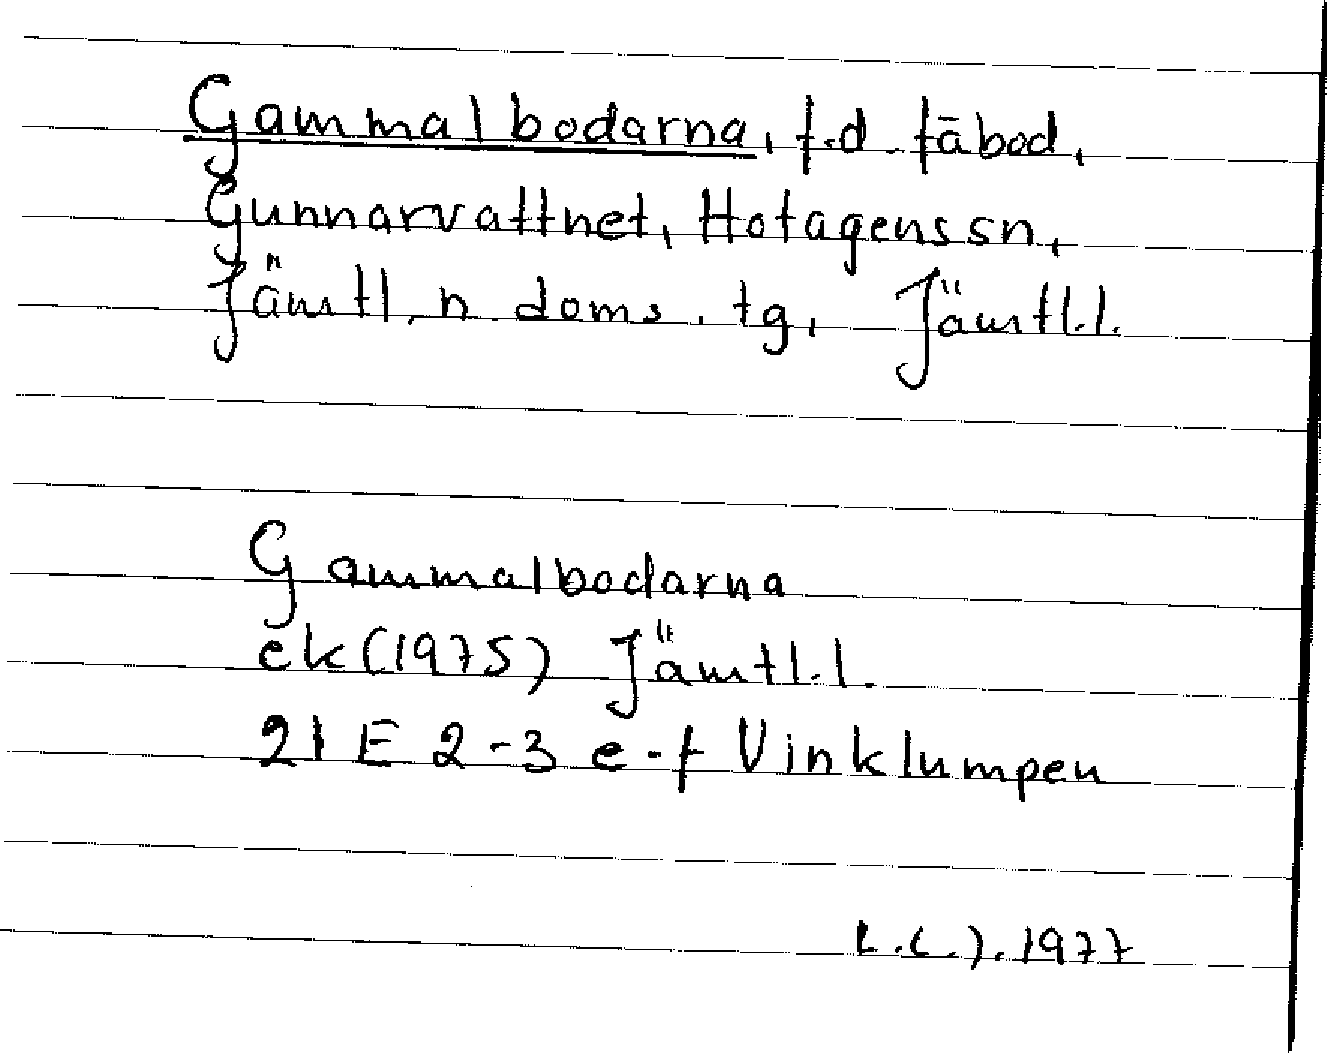 Gammalbodarna, f.d. fäbod,
Gunnarvattnet, Hotagens sn,
Jämtl. n. doms. tg, Jämtl.l.
Gammalbodarna
ek (1975) Jämtl.l.
21 E 2-3 e-f Vinklumpen
1977